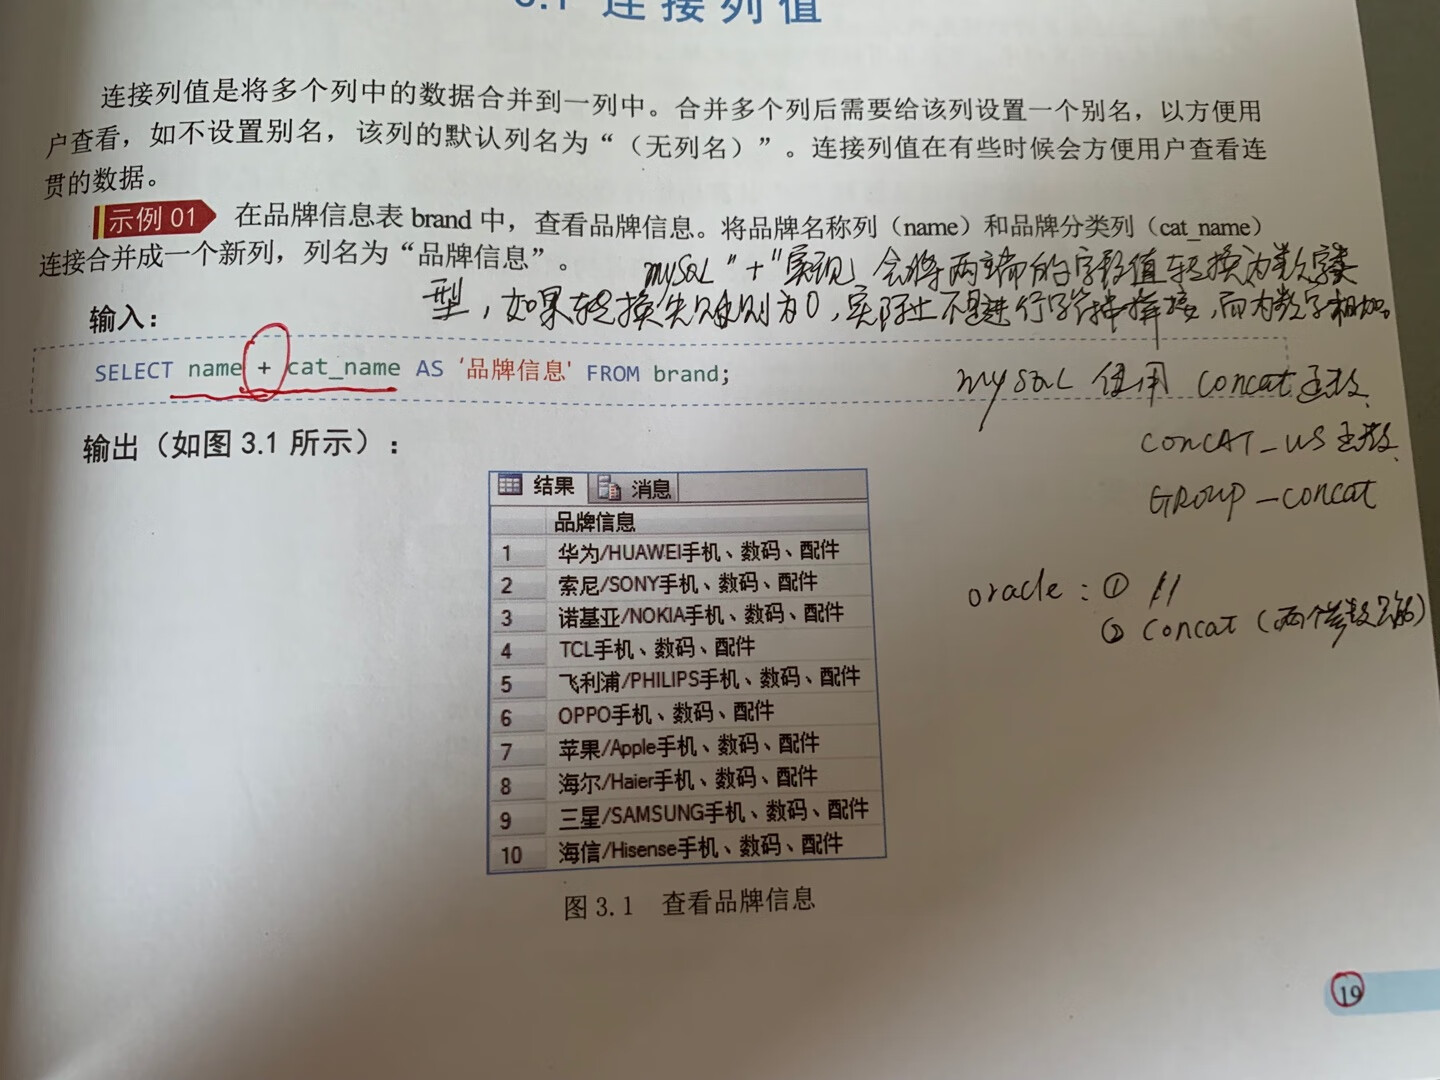 3.1 连接列值
连接列值是将多个列中的数据合并到一列中。合并多个列后需要给该列设置一个别名，以方便用
户查看，如不设置别名，该列的默认列名为“（无列名）”。连接列值在有些时候会方便用户查看连
贯的数据。
示例 01 在品牌信息表 brand 中，查看品牌信息。将品牌名称列（name）和品牌分类列（cat_name）
连接合并成一个新列，列名为“品牌信息”。
mySQL "+"实现，会将两端的字段值转换为数字类
型，如果转换失败则为0，实际上不是进行字符串拼接，而为数字相加。
输入：
SELECT name + cat_name AS '品牌信息' FROM brand;
mySQL 使用 concat函数
CONCAT_WS函数
GROUP_concat
输出（如图 3.1 所示）：
结果 消息
品牌信息
1 华为/HUAWEI手机、数码、配件
2 索尼/SONY手机、数码、配件
3 诺基亚/NOKIA手机、数码、配件
4 TCL手机、数码、配件
5 飞利浦/PHILIPS手机、数码、配件
6 OPPO手机、数码、配件
7 苹果/Apple手机、数码、配件
8 海尔/Haier手机、数码、配件
9 三星/SAMSUNG手机、数码、配件
10 海信/Hisense手机、数码、配件
oracle：① ||
② concat（两个参数
图 3.1 查看品牌信息
19